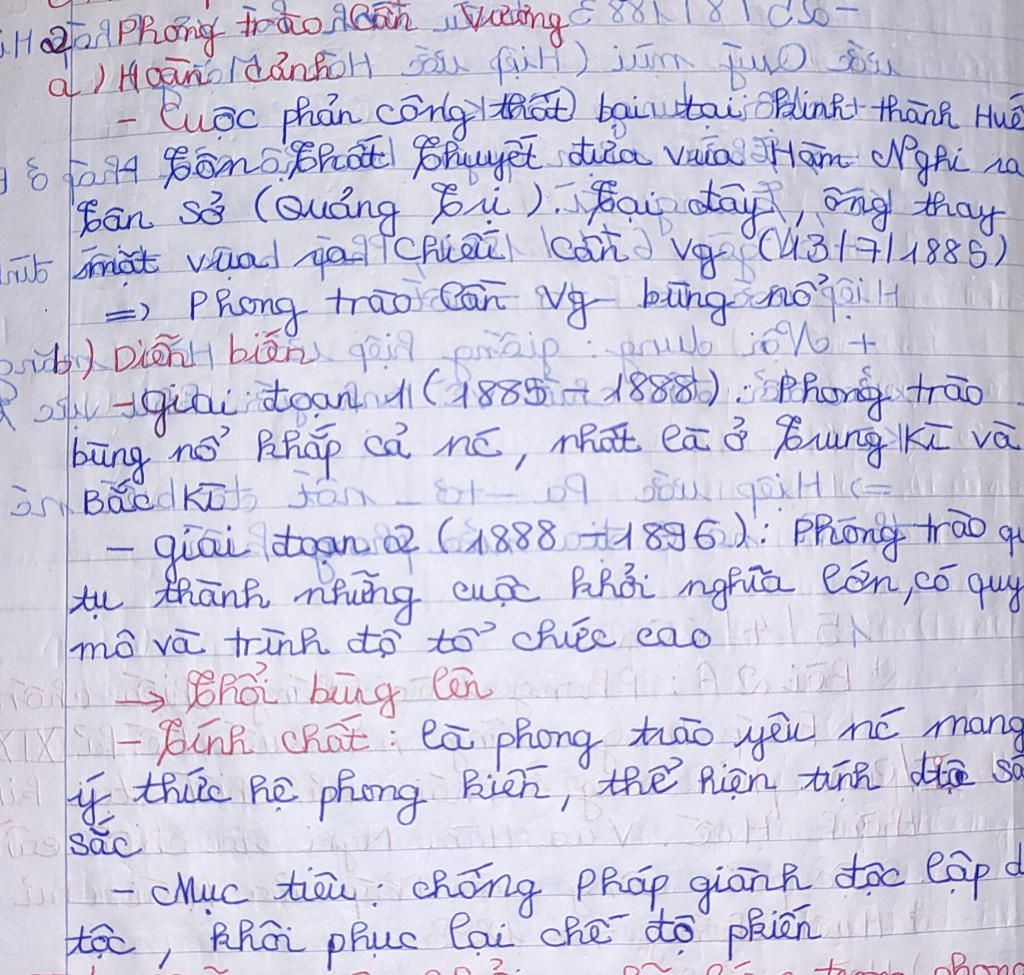 2) Phong trào Cần Vương
a) Hoàn cảnh
- Cuộc phản công thất bại tại kinh thành Huế
Tôn Thất Thuyết đưa vua Hàm Nghi ra
Tân Sở (Quảng Trị). Tại đây, ông thay
mặt vua ra Chiếu Cần Vg (13/7/1885)
=> Phong trào Cần Vg bùng nổ
b) Diễn biến
- giai đoạn 1 (1885 - 1888): Phong trào
bùng nổ khắp cả nc, nhất là ở Trung Kì và
Bắc Kì
- giai đoạn 2 (1888 - 1896): Phong trào qu
tụ thành những cuộc khởi nghĩa lớn, có quy
mô và trình độ tổ chức cao
→ Thổi bùng lên
- Tính chất: là phong trào yêu nc mang
ý thức hệ phong kiến, thể hiện tính dtộc sâ
sắc
- Mục tiêu: chống Pháp giành độc lập d
tộc, khôi phục lại chế độ pkiến